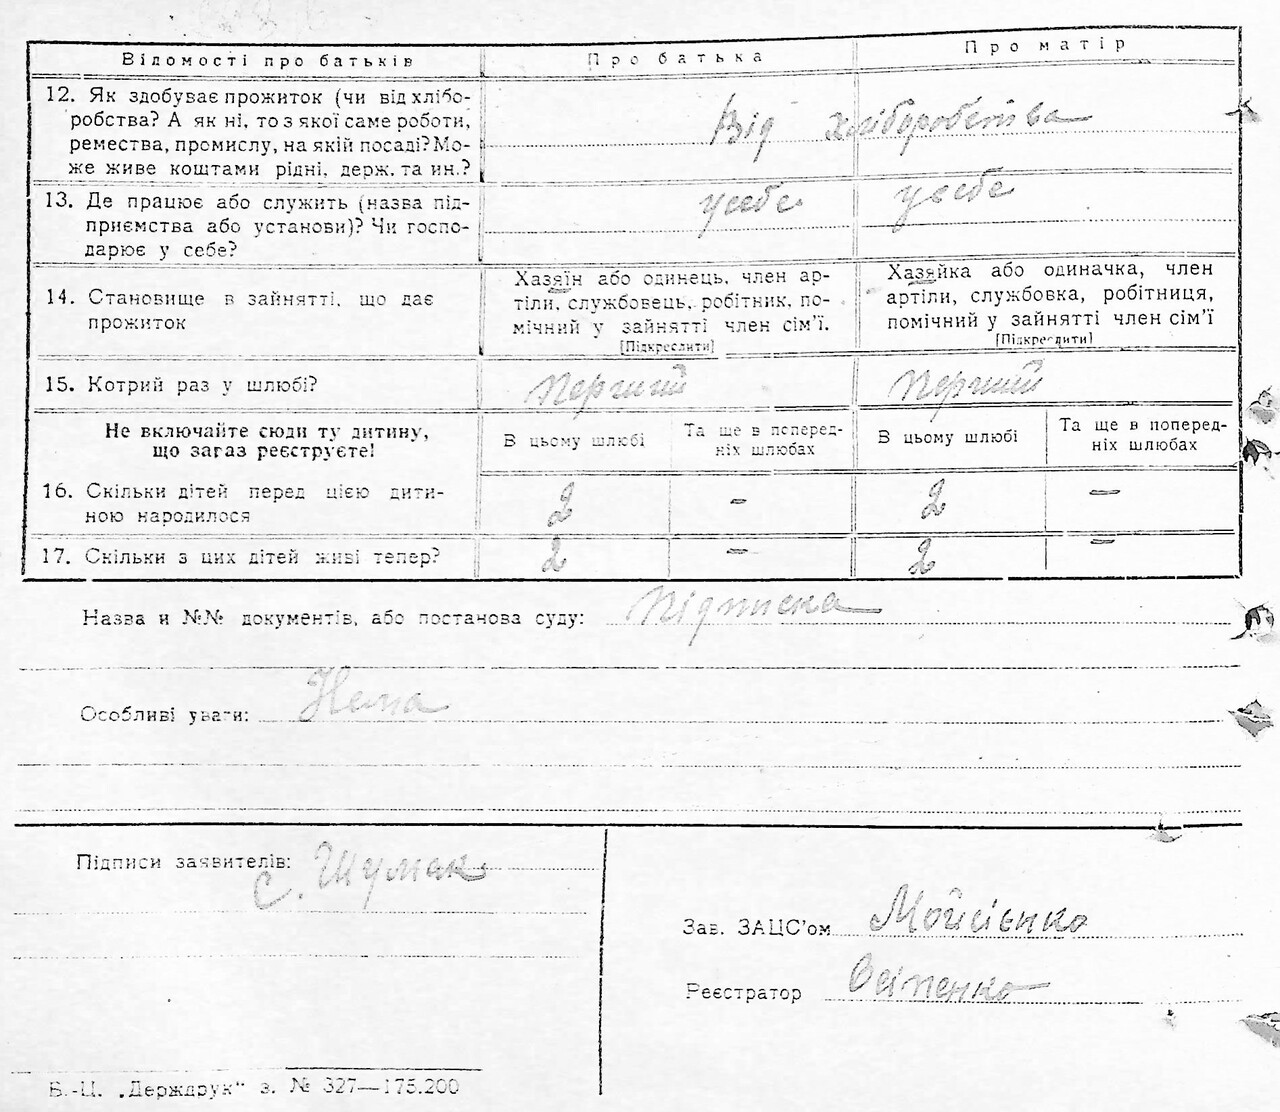 Відомості про батьків Про батька Про матір
12. Як здобуває прожиток (чи від хлібо-
робства? А як ні, то з якої саме роботи,
ремества, промислу, на якій посаді? Мо-
же живе коштами рідні, держ. та ин.?
Від хліборобства
13. Де працює або служить (назва під-
приємства або установи)? Чи госпо-
дарює у себе?
усебе усебе
14. Становище в зайнятті, що дає
прожиток
Хазяїн або одинець, член ар-
тіли, службовець, робітник, по-
мічний у зайнятті член сім'ї.
[Підкреслити]
Хазяйка або одиначка, член
артіли, службовка, робітниця,
помічний у зайнятті член сім'ї
[Підкреслити]
15. Котрий раз у шлюбі? Перший Перший
Не включайте сюди ту дитину,
що загаз реєструєте!
В цьому шлюбі
Та ще в поперед-
ніх шлюбах
В цьому шлюбі
Та ще в поперед-
ніх шлюбах
16. Скільки дітей перед цією дити-
ною народилося
2 - 2 -
17. Скільки з цих дітей живі тепер? 2 - 2 -
Назва и №№ документів, або постанова суду: Підписка
Особливі уваги: Нема
Підписи заявителів: С. Шумак
Зав. ЗАЦС'ом Мойсієнко
Реєстратор Осіпенко
Б.-Ц. „Держдрук" з. № 327—175.200